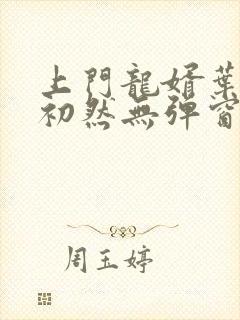 上門龍婿葉
初然無彈窗
周玉婷